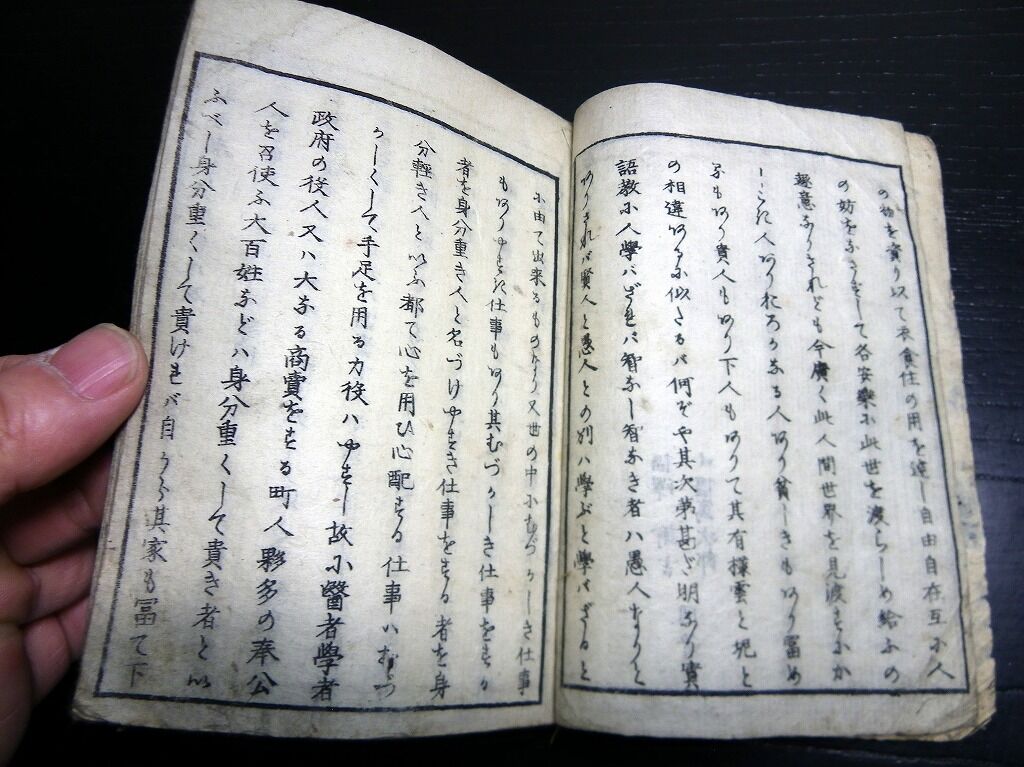 の物を資り以て衣食住の用を達し自由自在互に人
の妨をなさずして各安樂に此世を渡らしめ給ふの
趣意なりされども今廣く此人間世界を見渡すにか
しこき人ありおろかなる人あり貧しきもあり冨め
るもあり貴人もあり下人もありて其有樣雲と坭と
の相違あるに似たるハ何ぞや其次第甚だ明なり實
語教に人學バざれバ智なし智なき者ハ愚人なりと
ありされバ賢人と愚人との別ハ學ぶと學バざると
に由て出来るものなり又世の中にむづかしき仕事
もありやすき仕事もあり其むづかしき仕事をする
者を身分重き人と名づけやすき仕事をする者を身
分輕き人といふ都て心を用ひ心配する仕事ハむづ
かしくして手足を用る力役ハやすし故に醫者學者
政府の役人又ハ大なる商賣をする町人夥多の奉公
人を召使ふ大百姓などハ身分重くして貴き者とい
ふべし身分重くして貴けれバ自から其家も冨て下